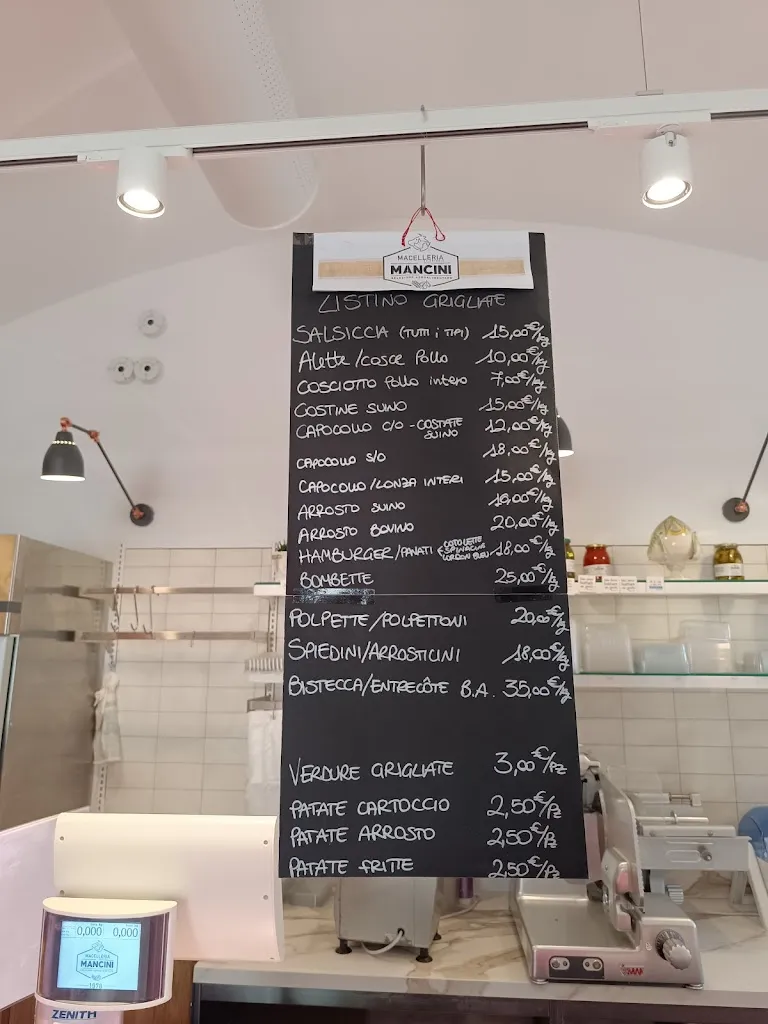 MACELLERIA
MANCINI
LISTINO GRIGLIATE
SALSICCIA (TUTTI i TIPI) 15,00€/kg
Alette/cosce Pollo 10,00€/kg
COSCIOTTO Pollo intero 7,00€/kg
COSTINE SUINO 15,00€/kg
CAPOCOLLO C/O - COSTATE SUINO 12,00€/kg
CAPOCOLLO S/O 18,00€/kg
CAPOCOLLO/LONZA INTERI 15,00€/kg
ARROSTO SUINO 19,00€/kg
ARROSTO BOVINO 20,00€/kg
HAMBURGER/PANATI COTOLETTE SPINACINE CORDON BLEU 18,00€/kg
BOMBETTE 25,00€/kg
POLPETTE/POLPETTONI 20,00€/kg
SPIEDINI/ARROSTICINI 18,00€/kg
BISTECCA/ENTRECÔTE B.A. 35,00€/kg
VERDURE GRIGLIATE 3,00€/Pz
PATATE CARTOCCIO 2,50€/Pz
PATATE ARROSTO 2,50€/Pz
PATATE FRITTE 2,50€/Pz
0,000 0,000
MACELLERIA
MANCINI
1970
ZENITH